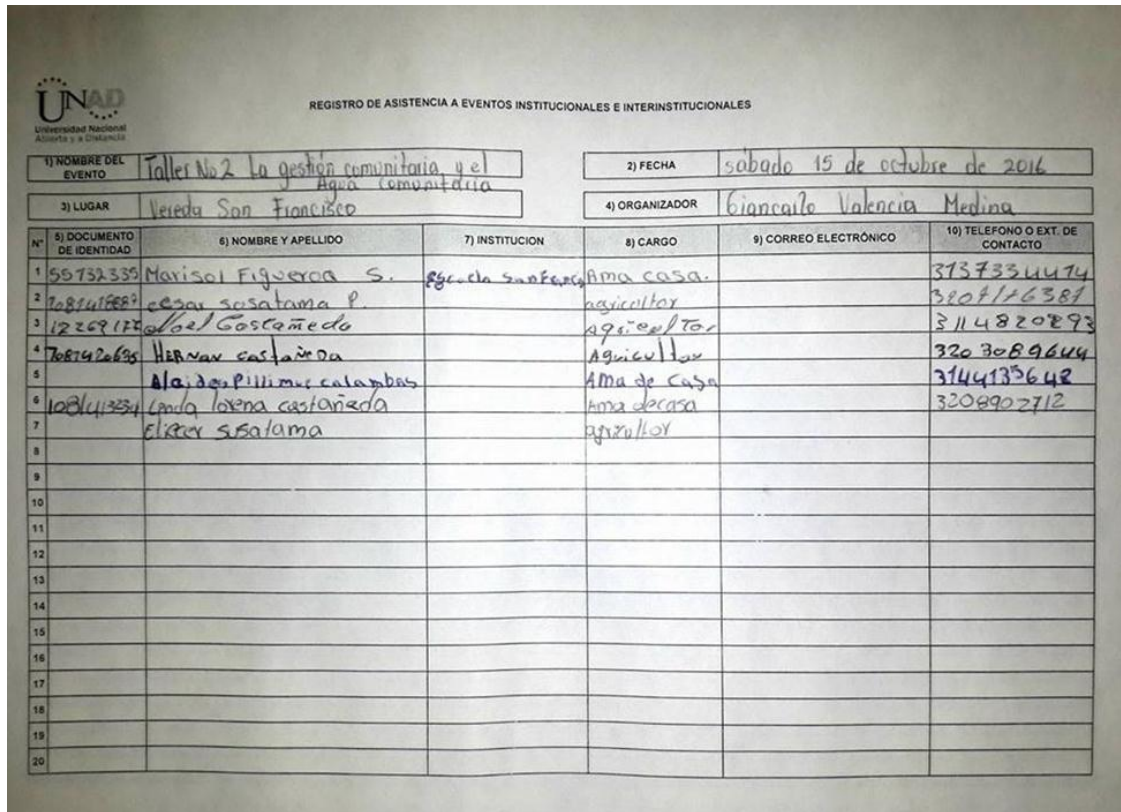 UNAD
Universidad Nacional
Abierta y a Distancia
REGISTRO DE ASISTENCIA A EVENTOS INSTITUCIONALES E INTERINSTITUCIONALES
1) NOMBRE DEL EVENTO Taller No 2 La gestión comunitaria y el
Agua comunitaria
2) FECHA sábado 15 de octubre de 2016
3) LUGAR Vereda San Francisco
4) ORGANIZADOR Giancarlo Valencia Medina
N° 5) DOCUMENTO DE IDENTIDAD 6) NOMBRE Y APELLIDO 7) INSTITUCION 8) CARGO 9) CORREO ELECTRÓNICO 10) TELEFONO O EXT. DE CONTACTO
1 55132335 Marisol Figueroa S. Ama casa. 3137334414
2 cesar sosatama P. agricultor
3 Noel Castañeda Agricultor 3114820893
4 HERNAN castañeDa Agricultor 3203089644
5 Pillimue calambas Ama de Casa 3144135648
6 lorena castañeda Ama decasa 3208902712
7 susatama
8
9
10
11
12
13
14
15
16
17
18
19
20